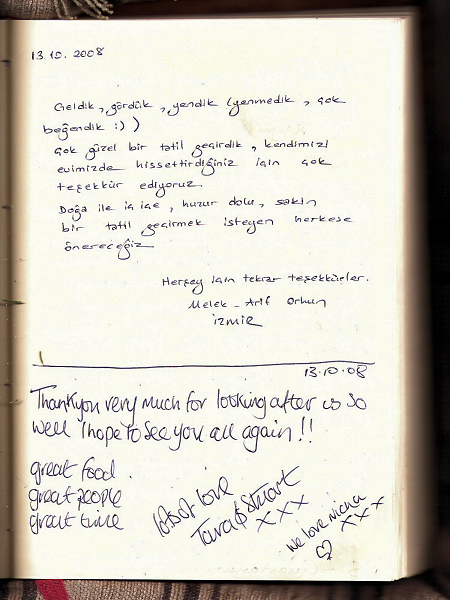 13.10.2008
Geldik, gördük, yendik (yenmedik, çok
beğendik :) )
Çok güzel bir tatil geçirdik, kendimizi
evimizde hissettirdiğiniz için çok
teşekkür ediyoruz.
Doğa ile iç içe, huzur dolu, sakin
bir tatil geçirmek isteyen herkese
önereceğiz
Herşey için tekrar teşekkürler.
Melek - Arif Orhun
İZMİR
13.10.08
Thankyou very much for looking after us so
well I hope to see you all again!!
great food.
great people
great time
lots of love
Tara & Stuart
xxx
We love
xxx